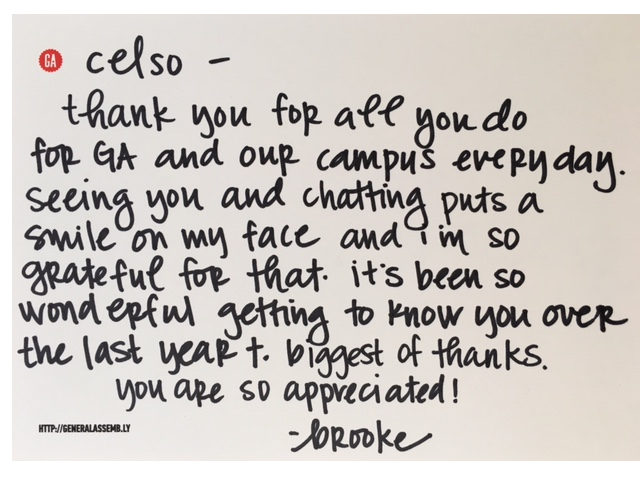 GA celso -
thank you for all you do
for GA and our campus everyday.
seeing you and chatting puts a
smile on my face and i'm so
grateful for that. it's been so
wonderful getting to know you over
the last year +. biggest of thanks.
you are so appreciated!
HTTP://GENERALASSEMB.LY
-brooke